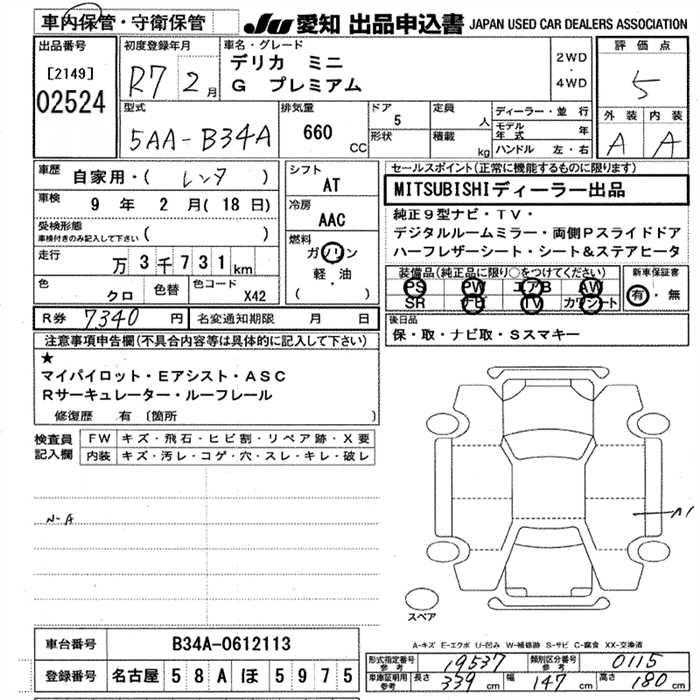 車内保管・守衛保管
JU 愛知 出品申込書 JAPAN USED CAR DEALERS ASSOCIATION
出品番号
[2149]
02524
初度登録年月
R7 2月
車名・グレード
デリカ ミニ
G プレミアム
2WD
・
4WD
評価点
5
外装 内装
A A
型式
5AA-B34A
排気量
660 CC
ドア
5
形状
定員
人
積載
kg
ディーラー・並行
モデル年式 年
ハンドル 左・右
車歴
自家用・( レンタ )
車検
9 年 2 月(18日)
受検形態
車検付きのみ記入して下さい ( )
走行
万 3 千 7 3 1 km
色
クロ
色替
色コード
X42
シフト
AT
冷房
AAC
燃料
ガソリン
軽・油
( )
R券 7340 円
名変通知期限 月 日
セールスポイント(正常に機能するものに限ります)
MITSUBISHIディーラー出品
純正9型ナビ・TV・
デジタルルームミラー・両側Pスライドドア
ハーフレザーシート・シート&ステアヒータ
装備品(純正品に限り○をつけてください)
PS PW エアB AW
SR ナビ TV カワシート
新車保証書
有・無
後日品
保・取・ナビ取・Sスマキー
注意事項申告欄(不具合内容等は具体的に記入して下さい)
★
マイパイロット・Eアシスト・ASC
Rサーキュレーター・ルーフレール
修復歴 有 〔箇所
検査員記入欄
FW キズ・飛石・ヒビ割・リペア跡・X要
内装 キズ・汚レ・コゲ・穴・スレ・キレ・破レ
N-A
A1
スペア
A-キズ E-エクボ U-凹み W-補修跡 S-サビ C-腐食 XX-交換済
車台番号 B34A-0612113
登録番号 名古屋 5 8 A ほ 5 9 7 5
形式指定番号 参考 19537
類別区分番号 参考 0115
車庫証明用 参考 長さ 339 cm 幅 147 cm 高さ 180 cm